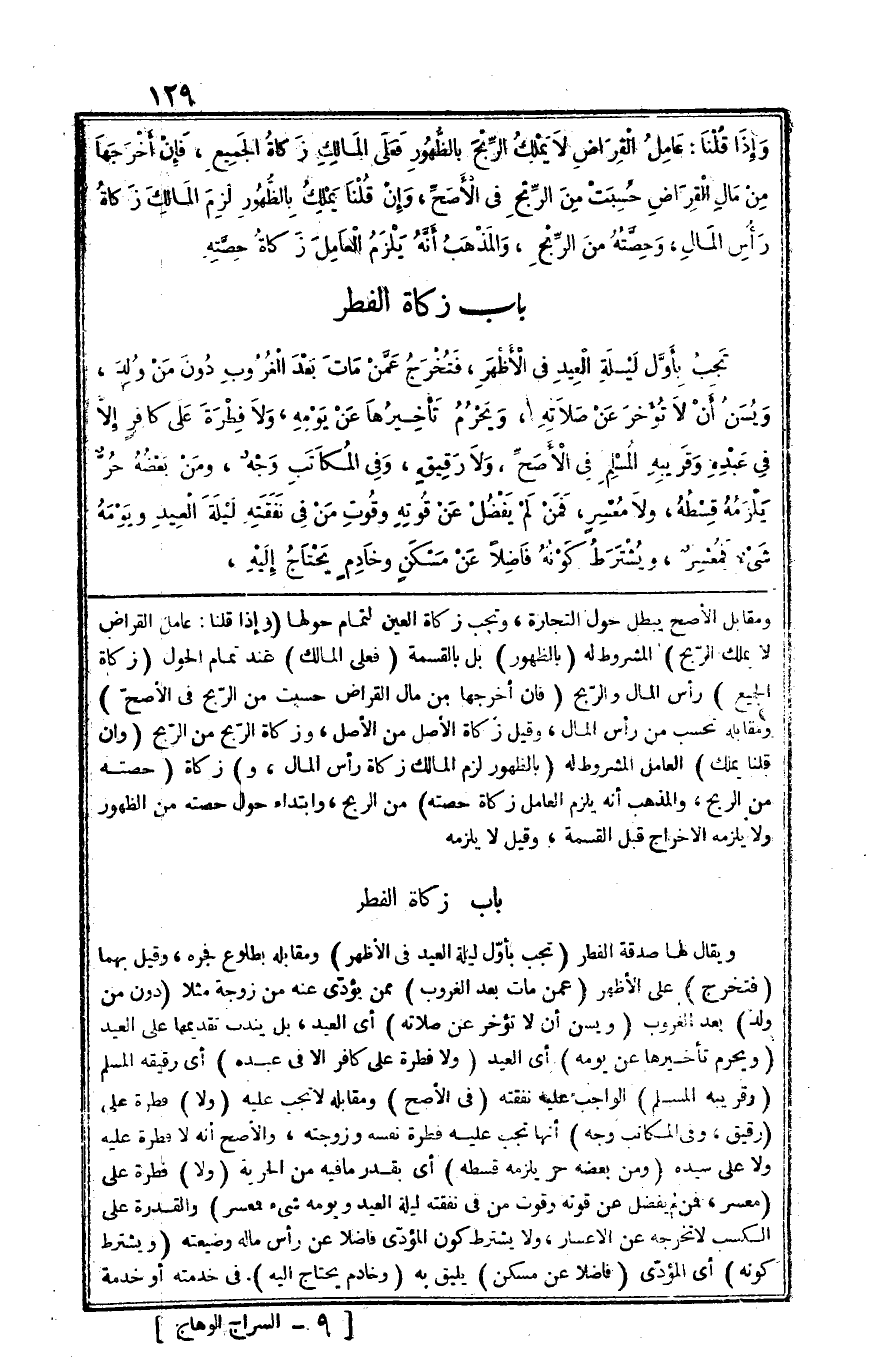 ١٢٩
وَإِذَا قُلْنَا : عَامِلُ الْقِرَاضِ لَا يَمْلِكُ الرِّبْحَ بِالظُّهُورِ فَعَلَى الْمَالِكِ زَكَاةُ الْجَمِيعِ ، فَإِنْ أَخْرَجَهَا
مِنْ مَالِ الْقِرَاضِ حُسِبَتْ مِنَ الرِّبْحِ فِى الْأَصَحِّ ، وَإِنْ قُلْنَا يَمْلِكُ بِالظُّهُورِ لَزِمَ الْمَالِكَ زَكَاةُ
رَأْسِ الْمَالِ ، وَحِصَّتُهُ مِنَ الرِّبْحِ ، وَالْمَذْهَبُ أَنَّهُ يَلْزَمُ الْعَامِلَ زَكَاةُ حِصَّتِهِ
باب زكاة الفطر
تَجِبُ بِأَوَّلِ لَيْلَةِ الْعِيدِ فِى الْأَظْهَرِ ، فَتُخْرَجُ عَمَّنْ مَاتَ بَعْدَ الْغُرُوبِ دُونَ مَنْ وُلِدَ ،
وَيُسَنُّ أَنْ لَا تُؤَخَّرَ عَنْ صَلَاتِهِ ، وَيَحْرُمُ تَأْخِيرُهَا عَنْ يَوْمِهِ ، وَلَا فِطْرَةَ عَلَى كَافِرٍ إِلَّا
فِي عَبْدِهِ وَقَرِيبِهِ الْمُسْلِمِ فِى الْأَصَحِّ ، وَلَا رَقِيقٍ ، وَفِى الْمُكَاتَبِ وَجْهٌ ، وَمَنْ بَعْضُهُ حُرٌّ
يَلْزَمُهُ قِسْطُهُ ، وَلَا مُعْسِرٍ ، فَمَنْ لَمْ يَفْضُلْ عَنْ قُوتِهِ وَقُوتِ مَنْ فِى نَفَقَتِهِ لَيْلَةَ الْعِيدِ وَيَوْمَهُ
شَىْءٌ فَمُعْسِرٌ ، وَيُشْتَرَطُ كَوْنُهُ فَاضِلًا عَنْ مَسْكَنٍ وَخَادِمٍ يَحْتَاجُ إِلَيْهِ ،
ومقابل الأصح يبطل حول التجارة ، وتجب زكاة العين لتمام حولها (وإذا قلنا : عامل القراض
لا يملك الربح) المشروط له (بالظهور) بل بالقسمة (فعلى المالك) عند تمام الحول (زكاة
الجميع) رأس المال والربح (فان أخرجها من مال القراض حسبت من الربح فى الأصح)
ومقابله تحسب من رأس المال ، وقيل زكاة الأصل من الأصل ، وزكاة الربح من الربح (وان
قلنا يملك) العامل المشروط له (بالظهور لزم المالك زكاة رأس المال ، و) زكاة (حصته
من الربح ، والمذهب أنه يلزم العامل زكاة حصته) من الربح ، وابتداء حول حصته من الظهور
ولا يلزمه الاخراج قبل القسمة ، وقيل لا يلزمه
باب زكاة الفطر
ويقال لها صدقة الفطر (تجب بأوّل ليلة العيد فى الأظهر) ومقابله بطلوع فجره ، وقيل بهما
(فتخرج) على الأظهر (عمن مات بعد الغروب) ممن يؤدّى عنه من زوجة مثلا (دون من
ولد) بعد الغروب (ويسن أن لا تؤخر عن صلاته) أى العيد ، بل يندب تقديمها على العيد
(ويحرم تأخيرها عن يومه) أى العيد (ولا فطرة على كافر الا فى عبده) أى رقيقه المسلم
(وقريبه المسلم) الواجب عليه نفقته (فى الأصح) ومقابله لا تجب عليه (ولا) فطرة على
(رقيق ، وفى المكاتب وجه) أنها تجب عليه فطرة نفسه وزوجته ، والأصح أنه لا فطرة عليه
ولا على سيده (ومن بعضه حر يلزمه قسطه) أى بقدر مافيه من الحرية (ولا) فطرة على
(معسر ، فمن لم يفضل عن قوته وقوت من فى نفقته ليلة العيد ويومه شىء فمعسر) والقدرة على
الكسب لا تخرجه عن الاعسار ، ولا يشترط كون المؤدّى فاضلا عن رأس ماله وضيعته (ويشترط
كونه) أى المؤدّى (فاضلا عن مسكن) يليق به (وخادم يحتاج اليه) . فى خدمته أو خدمة
[ ٩ - السراج الوهاج ]